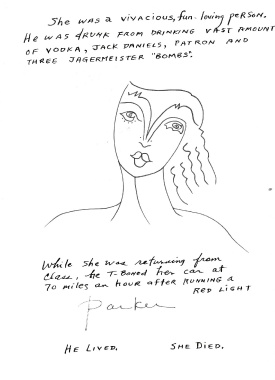 She was a vivacious, fun-loving person.
He was drunk from drinking vast amount
of vodka, Jack Daniels, Patron and
three Jagermeister "Bombs".
While she was returning from
class, he T-Boned her car at
70 miles an hour after running a
red light
Parker
He Lived. She Died.